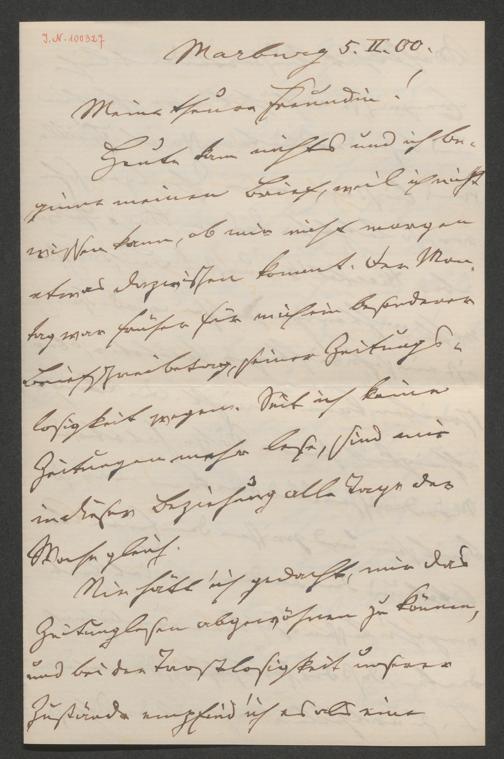 J.N. 100327
Marburg 5. II. 00.
Meine theure Freundin!
Heute kam nichts und ich be-
ginne meinen Brief, weil ich nicht
wissen kann, ob mir nicht morgen
etwas dazwischen kommt. Der Mon-
tag war früher für mich ein besonderer
Briefschreibetag, seiner Zeitungs-
losigkeit wegen. Seit ich keine
Zeitungen mehr lese, sind mir
in dieser Beziehung alle Tage der
Woche gleich.
Nie hätt' ich gedacht, mir das
Zeitunglesen abgewöhnen zu können,
und bei der Trostlosigkeit unserer
Zustände empfind' ich es als eine